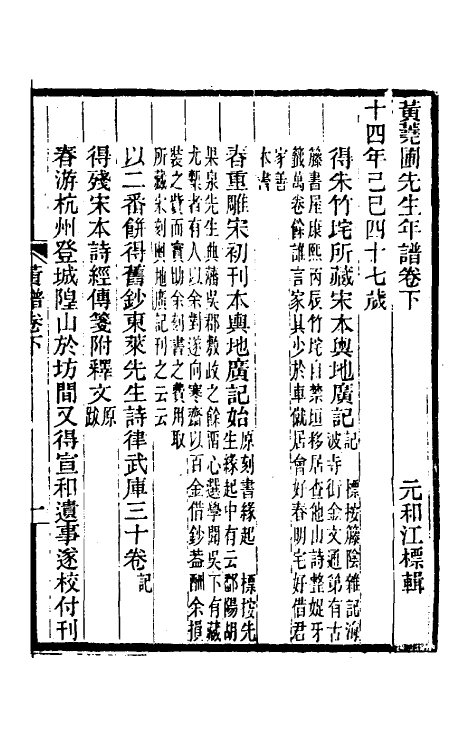 黃蕘圃先生年譜卷下
元和江標輯
十四年己巳四十七歲
得朱竹垞所藏宋本輿地廣記記 標按籐陰雜記海
波寺街金文通第有古
籐書屋康熙丙辰竹垞自禁垣移居查他山詩整娖牙
籤萬卷餘誰言家具少於車僦居會好春明宅好借君
家善
本書
春重雕宋初刊本輿地廣記始原刻書緣起 標按先
生緣起中有云鄱陽胡
果泉先生典藩吳郡敷政之餘留心選學聞吳下有藏
尤槧者有人以余對遂向寒齋以百金借鈔葢酬余損
裝之費而實助余刻書之費用取
所藏宋刻輿地廣記刊之云云
以二番餅得舊鈔東萊先生詩律武庫三十卷記
得殘宋本詩經傳箋附釋文原
跋
春游杭州登城隍山於坊間又得宣和遺事遂校付刊
黃譜卷下
一